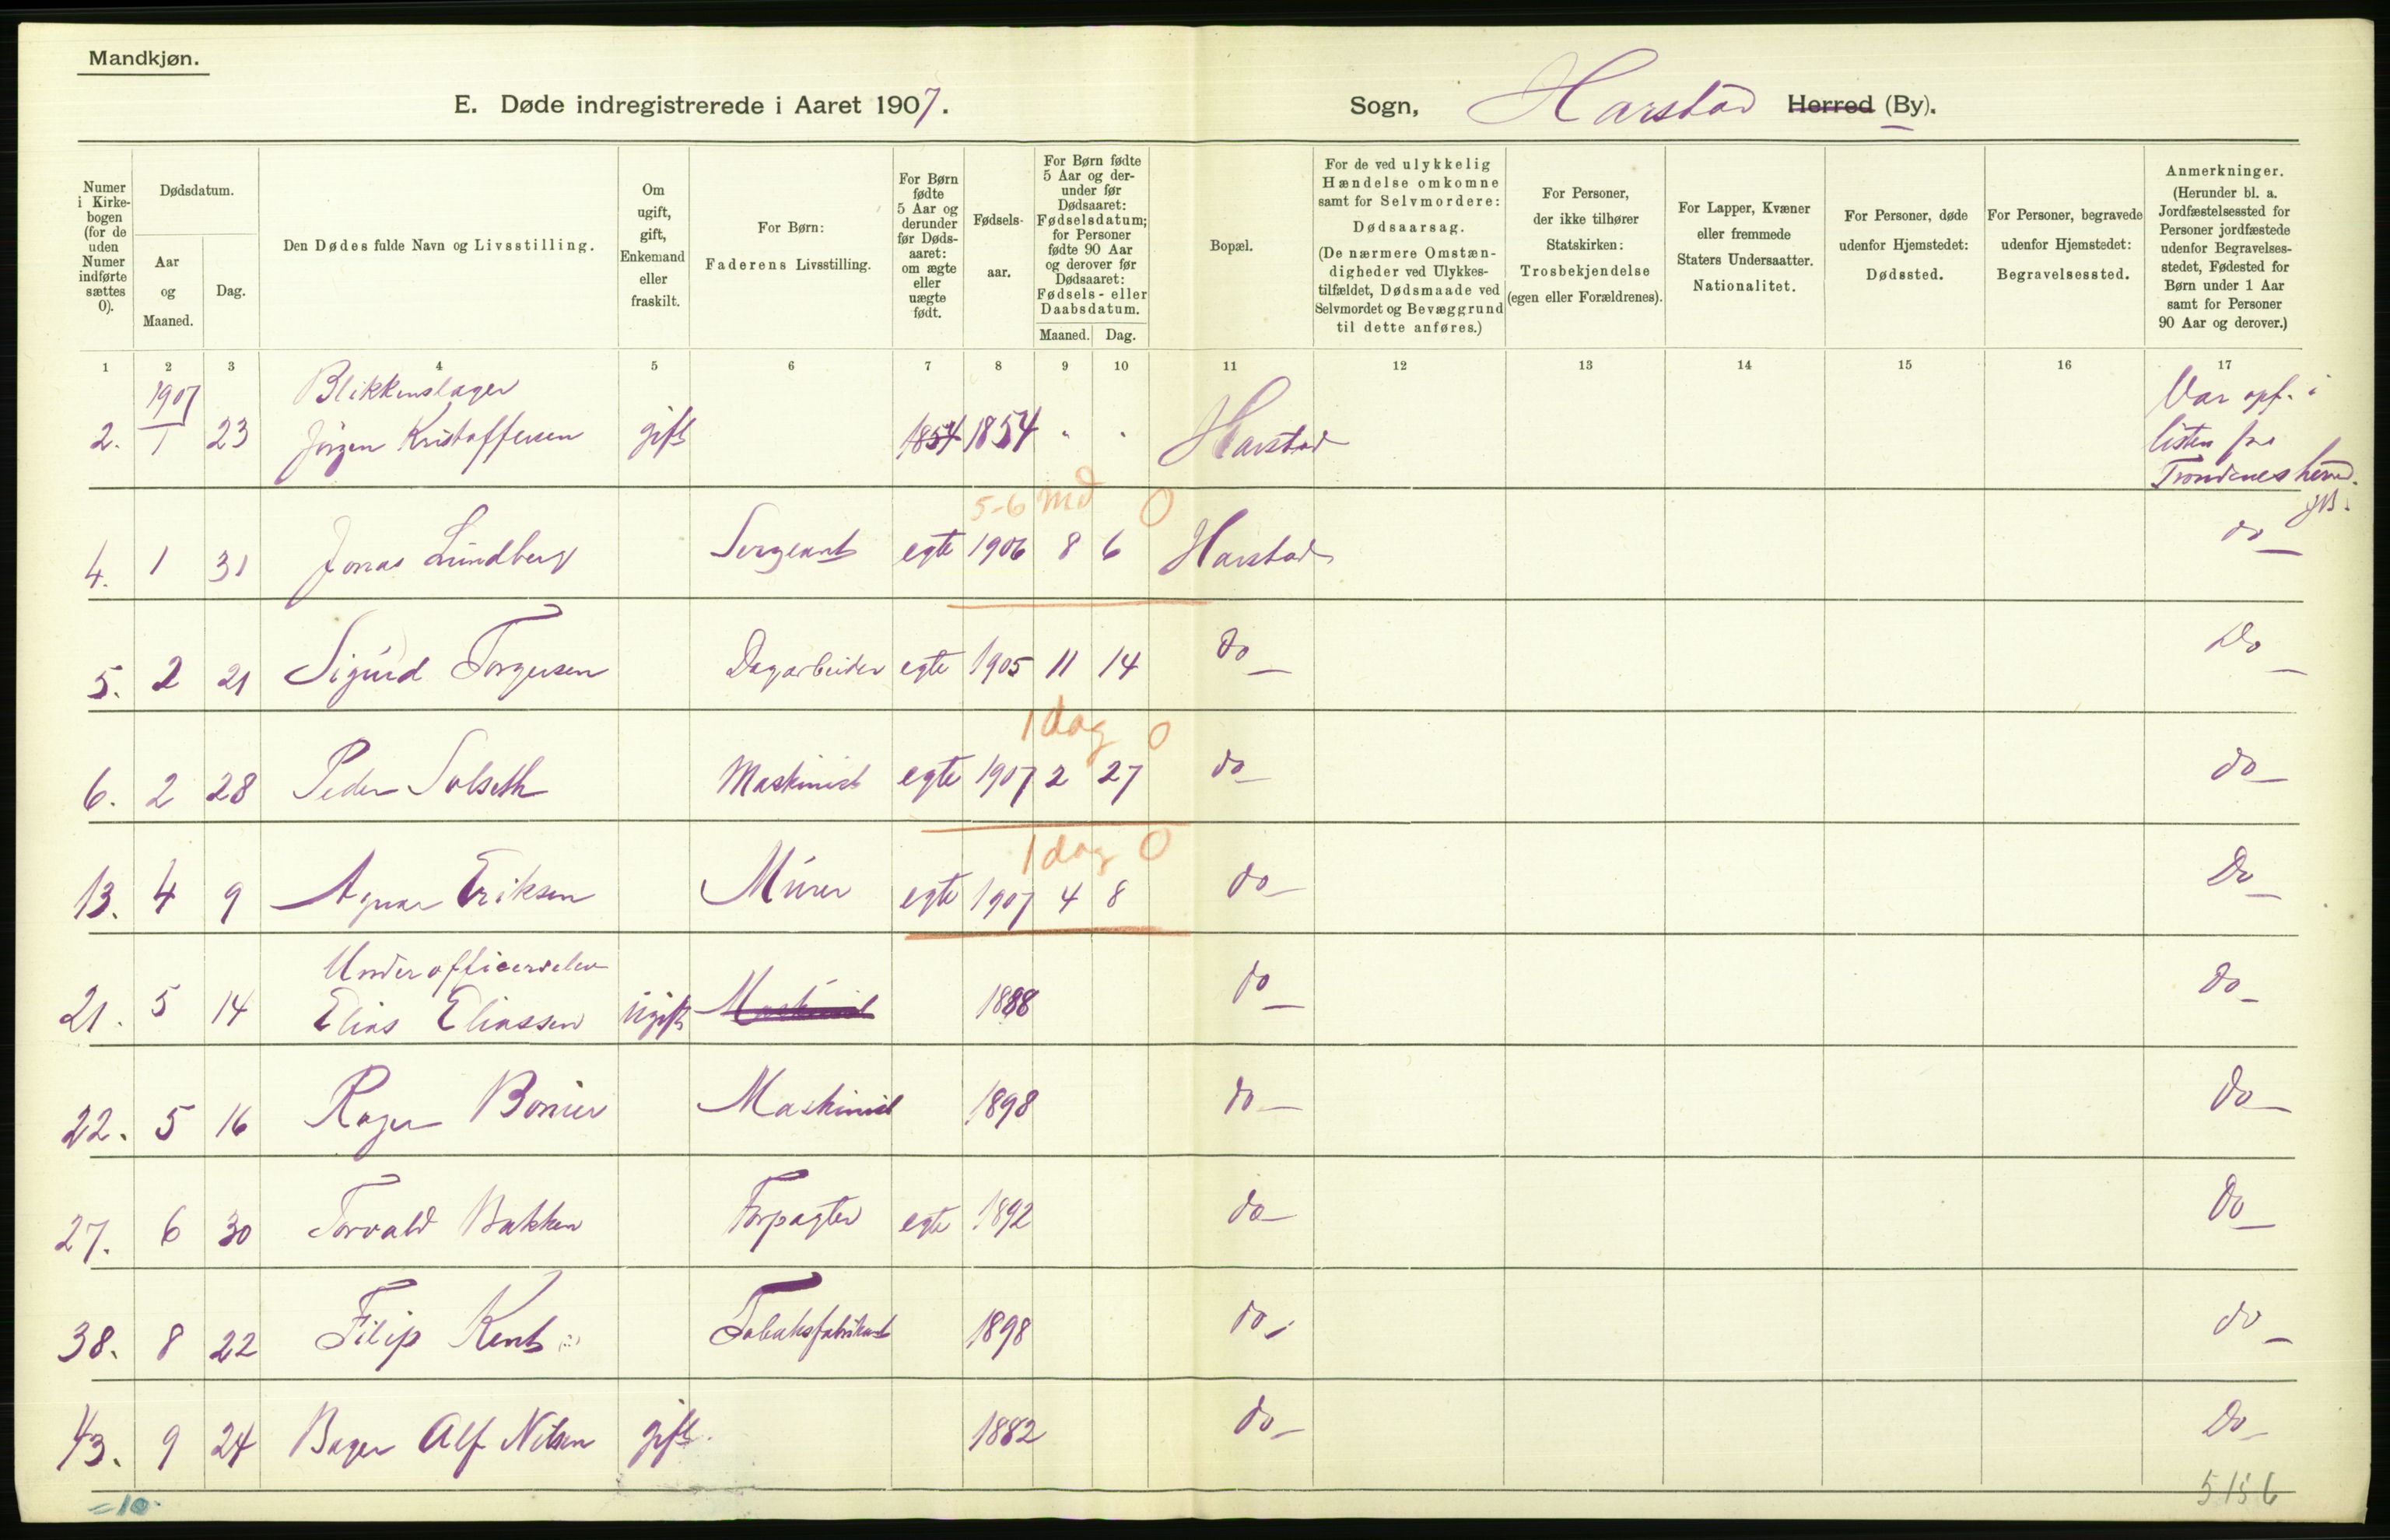 Mandkjøn.
E. Døde indregistrerede i Aaret 1907.
Sogn, Harstad Herred (By).
Numer i Kirkebogen (for de uden Numer indførte sættes 0).
Dødsdatum.
Aar og Maaned.
Dag.
Den Dødes fulde Navn og Livsstilling.
Om ugift, gift, Enkemand eller fraskilt.
For Børn: Faderens Livsstilling.
For Børn fødte 5 Aar og derunder før Dødsaaret: om ægte eller uægte født.
Fødselsaar.
For Børn fødte 5 Aar og derunder før Dødsaaret: Fødselsdatum; for Personer fødte 90 Aar og derover før Dødsaaret: Fødsels- eller Daabsdatum.
Maaned. Dag.
Bopæl.
For de ved ulykkelig Hændelse omkomne samt for Selvmordere: Dødsaarsag. (De nærmere Omstændigheder ved Ulykkestilfældet, Dødsmaade ved Selvmordet og Bevæggrund til dette anføres.)
For Personer, der ikke tilhører Statskirken: Trosbekjendelse (egen eller Forældrenes).
For Lapper, Kvæner eller fremmede Staters Undersaatter. Nationalitet.
For Personer, døde udenfor Hjemstedet: Dødssted.
For Personer, begravede udenfor Hjemstedet: Begravelsessted.
Anmerkninger. (Herunder bl. a. Jordfæstelsessted for Personer jordfæstede udenfor Begravelsesstedet, Fødested for Børn under 1 Aar samt for Personer 90 Aar og derover.)
1 2 3 4 5 6 7 8 9 10 11 12 13 14 15 16 17
1907 Blikkenslager Var opf. i
2. 1 23 Jörgen Kristoffersen gift 1854 1854 " " Harstad listen fra
Trondenes herred.
5-6 md 0
4. 1 31 Jonas Lundberg Sergeant egte 1906 8 6 Harstad do
5. 2 21 Sigurd Torgersen Dagarbeider egte 1905 11 14 do Do
1 dag 0
6. 2 28 Peder Solseth Maskinist egte 1907 2 27 do do
1 dag 0
13. 4 9 Agnar Eriksen Murer egte 1907 4 8 do Do
Underofficerselev
21. 5 14 Elias Eliassen ugift Maskinist 1888 do do
22. 5 16 Roger Maskinist 1898 do do
27. 6 30 Torvald Bakken Forpagter egte 1892 do do
38. 8 22 Filip Kent Tobaksfabrikant 1898 do do
43. 9 24 Bager Alf Nilsen gift. 1882 do Do
=10.
5156